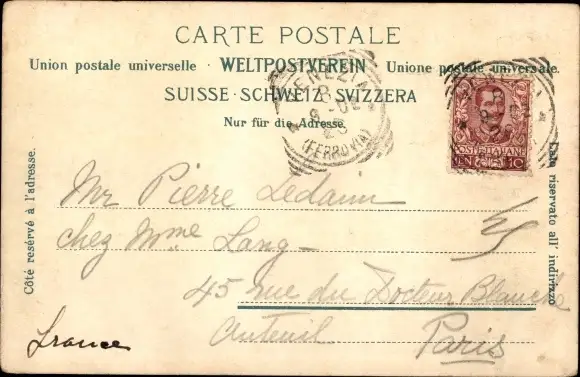 CARTE POSTALE
Union postale universelle · WELTPOSTVEREIN · Unione postale universale.
SUISSE · SCHWEIZ · SVIZZERA
Nur für die Adresse.
Côté resérvé à l'adresse.
Lato riservato all' indirizzo
VENEZIA
(FERROVIA)
POSTE ITALIANE
CEN. 10
Mr Pierre Ledain
chez Mme Lang
45 rue du Docteur Blanche
Auteuil Paris
France